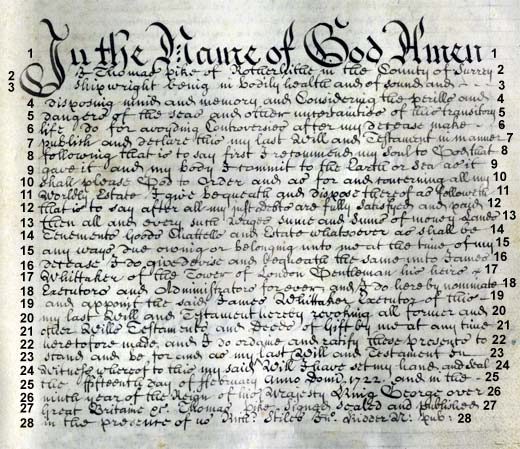 1 In the Name of God Amen 1
2 I Thomas Pike of Rotherhithe in the County of Surrey 2
3 Shipwright being in bodily health and of sound and 3
4 disposing mind and memory and Considering the perills and 4
5 dangers of the seas and other uncertainties of this transitory 5
6 life Do for avoyding Controversies after my decease make 6
7 publish and declare this my last Will and Testament in manner 7
8 following that is to say first I recommend my soul to God that 8
9 gave it and my body I commit to the Earth or Sea as it 9
10 shall please God to Order and as for and concerning all my 10
11 Worldly Estate I give bequeath and dispose thereof as followeth 11
12 that is to say after all my just debts are fully satisfied and paid 12
13 then all and every such Wages Sume and Sums of money Lands 13
14 Tenements Goods Chattells and Estate whatsoever as shall be 14
15 any ways due owing or belonging unto me at the time of my 15
16 decease I do give devise and bequeath the same unto James 16
17 Whittaker of the Tower of London Gentleman his heirs 17
18 Executors and Administrators for ever and I do hereby nominate 18
19 and appoint the said James Whittaker Executor of this 19
20 my last Will and Testament hereby revoking all former and 20
21 other Wills Testaments and Deeds of Gift by me at any time 21
22 heretofore made and I do ordaine and ratify these presents to 22
23 stand and be for and as my last Will and Testament In 23
24 Witness whereof to this my said Will I have set my hand and seal 24
25 the fifteenth day of February Anno Domi. 1722 and in the 25
26 ninth year of the Reign of his Majesty King George over 26
27 Great Britaine &c. Thomas Pike Signed Sealed and published 27
28 in the presence of us Stiles pub: 28